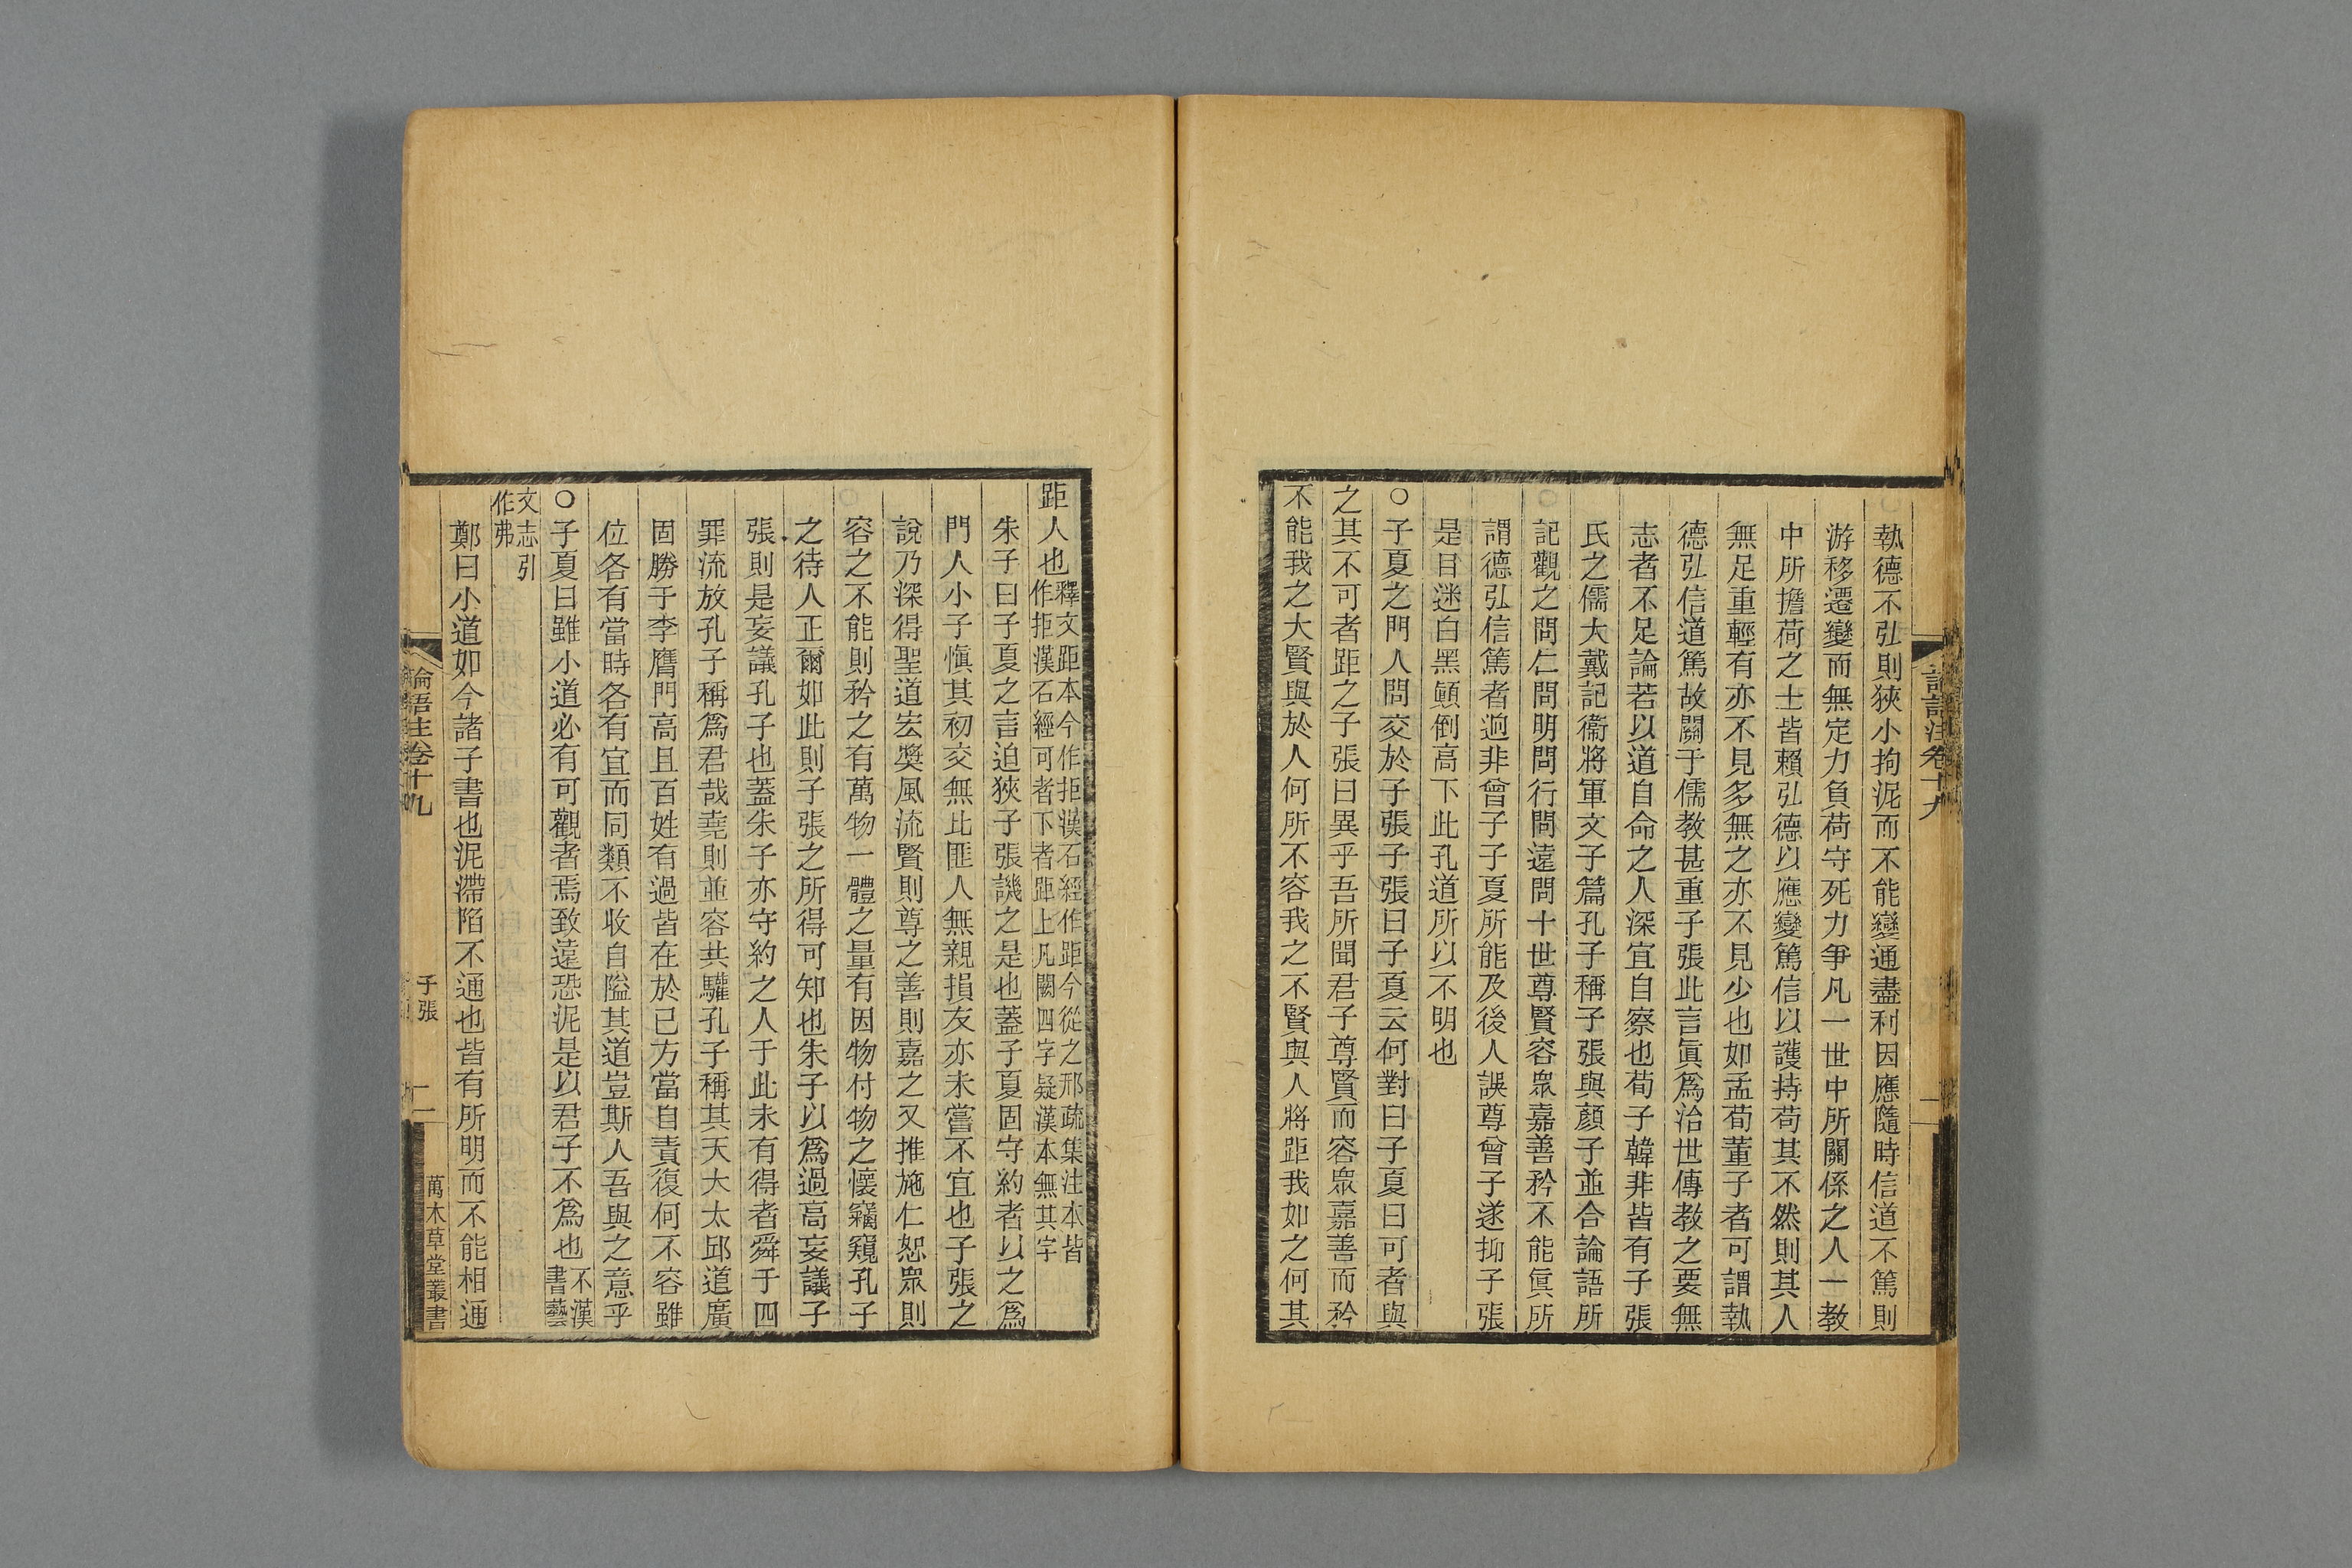 執德不弘則狹小拘泥而不能變通盡利因應隨時信道不篤則
游移遷變而無定力負荷守死力爭凡一世中所關係之人一教
中所擔荷之士皆賴弘德以應變篤信以護持苟其不然則其人
無足重輕有亦不見多無之亦不見少也如孟荀董子者可謂執
德弘信道篤故關于儒教甚重子張此言眞爲治世傳教之要無
志者不足論若以道自命之人深宜自察也荀子韓非皆有子張
氏之儒大戴記衞將軍文子篇孔子稱子張與顏子並合論語所
記觀之問仁問明問行問遠問十世尊賢容眾嘉善矜不能眞所
謂德弘信篤者迥非曾子子夏所能及後人誤尊曾子遂抑子張
是目迷白黑顚倒高下此孔道所以不明也
○子夏之門人問交於子張子張曰子夏云何對曰子夏曰可者與
之其不可者距之子張曰異乎吾所聞君子尊賢而容眾嘉善而矜
不能我之大賢與於人何所不容我之不賢與人將距我如之何其
距人也釋文距本今作拒漢石經作距今從之邢疏集注本皆
作拒漢石經可者下者距上凡闕四字疑漢本無其字
朱子曰子夏之言迫狹子張譏之是也蓋子夏固守約者以之爲
門人小子愼其初交無比匪人無親損友亦未嘗不宜也子張之
說乃深得聖道宏獎風流賢則尊之善則嘉之又推施仁恕眾則
容之不能則矜之有萬物一體之量有因物付物之懷竊窺孔子
之待人正爾如此則子張之所得可知也朱子以爲過高妄議子
張則是妄議孔子也蓋朱子亦守約之人于此未有得者舜于四
罪流放孔子稱爲君哉堯則並容共驩孔子稱其天大太邱道廣
固勝于李膺門高且百姓有過皆在於己方當自責復何不容雖
位各有當時各有宜而同類不收自隘其道豈斯人吾與之意乎
○子夏曰雖小道必有可觀者焉致遠恐泥是以君子不爲也不漢
書藝
文志引
作弗
鄭曰小道如今諸子書也泥滯陷不通也皆有所明而不能相通
論語注卷十九
子張
二
萬木草堂叢書